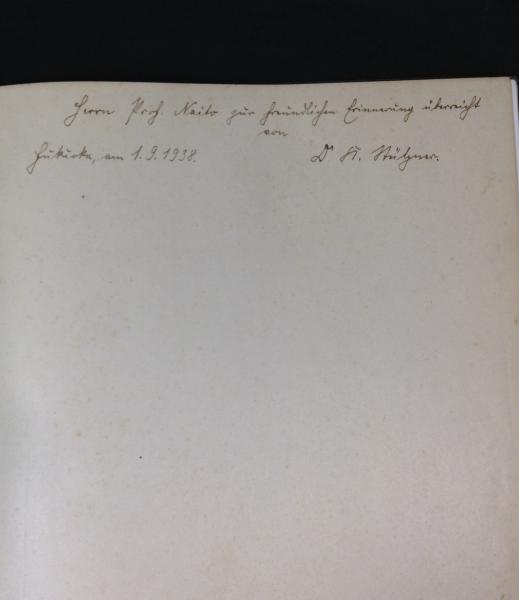 Herrn Prof. Naito zur freundlichen Erinnerung überreicht
von
Fukuoka, am 1.9.1938. Dr K. Stülzner.